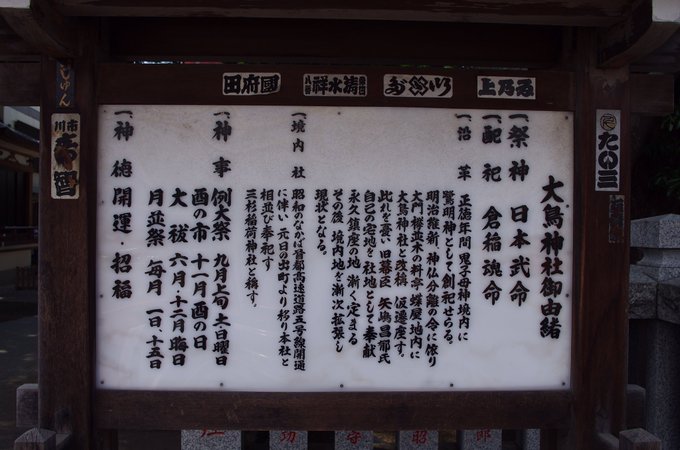 大鳥神社御由緒
一、祭神　日本武命
一、配祀　倉稲魂命
一、沿革　正徳年間 鬼子母神境内に
鷲明神として創祀せらる。
明治維新、神仏分離の令に依り
大門欅並木の料亭 蝶屋地内に
大鳥神社と改称 仮遷座す。
此れを憂い 旧幕臣 矢嶋昌郁氏
自己の宅地を社地として奉献
永久鎮座の地 漸く定まる
その後 境内地を漸次拡張し
現状となる。
一、境内社　昭和のなかば首都高速道路五号線開通
に伴い 元日の出町より移り本社と
相並び奉祀す
三杉稲荷神社と稱す。
一、神事　例大祭　九月上旬 土日曜日
酉の市　十一月酉の日
大祓　六月・十二月晦日
月並祭　毎月　一日、十五日
一、神徳　開運・招福
上乃乃
清水祥
国府田
じゅん
市川
たの三